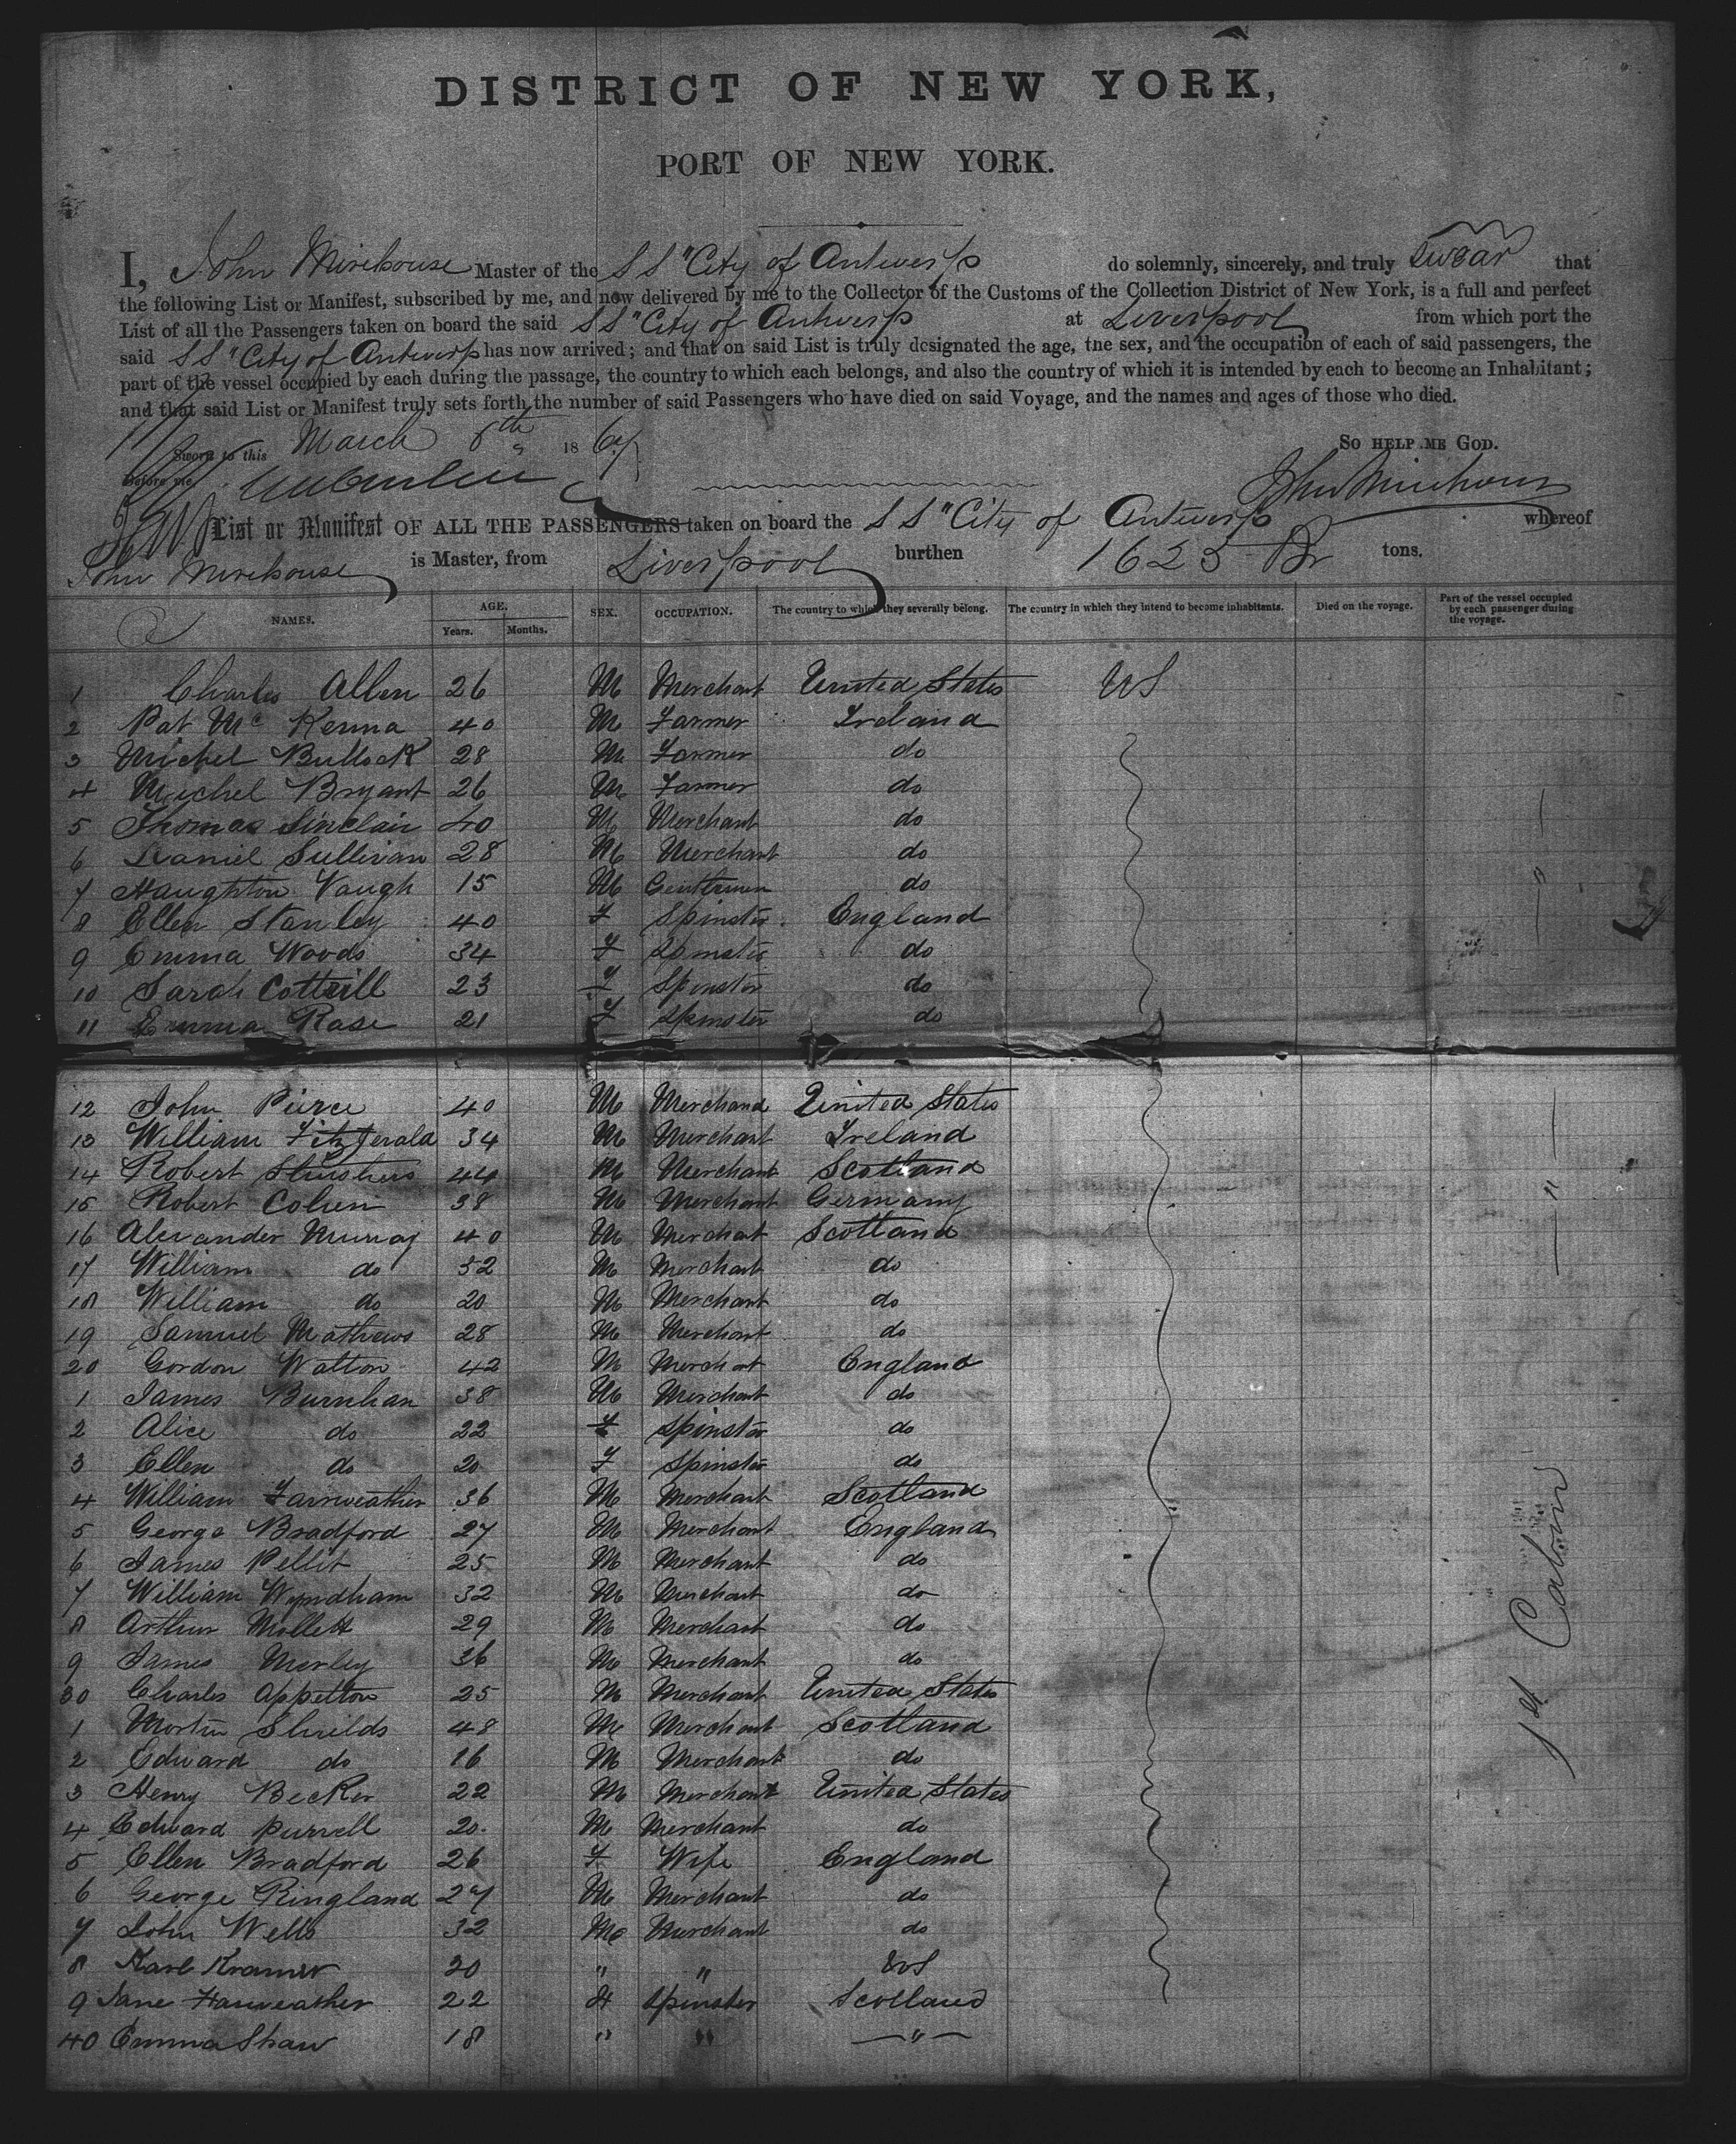 DISTRICT OF NEW YORK,
PORT OF NEW YORK.
I, John Mirehouse Master of the S S "City of Antwerp do solemnly, sincerely, and truly swear that
the following List or Manifest, subscribed by me, and now delivered by me to the Collector of the Customs of the Collection District of New York, is a full and perfect
List of all the Passengers taken on board the said S S "City of Antwerp at Liverpool from which port the
said S S "City of Antwerp has now arrived; and that on said List is truly designated the age, the sex, and the occupation of each of said passengers, the
part of the vessel occupied by each during the passage, the country to which each belongs, and also the country of which it is intended by each to become an Inhabitant;
and that said List or Manifest truly sets forth the number of said Passengers who have died on said Voyage, and the names and ages of those who died.
Sworn to this March 18 67 So HELP ME GOD.
Before me John Mirehouse
List or Manifest OF ALL THE PASSENGERS taken on board the S S "City of Antwerp whereof
John Mirehouse is Master, from Liverpool burthen 1625 Br tons.
NAMES. AGE. Years. Months. SEX. OCCUPATION. The country to which they severally belong. The country in which they intend to become inhabitants. Died on the voyage. Part of the vessel occupied by each passenger during the voyage.
1 Charles Allen 26 M Merchant United States US
2 Pat Mc Kenna 40 M Farmer Ireland
3 Michel Bullock 28 M Farmer do
4 Michel Bryant 26 M Farmer do
5 Thomas Sinclair 40 M Merchant do
6 Daniel Sullivan 28 M Merchant do
7 Haughton Vaugh 15 M Gentleman do
8 Ellen Stanley 40 F Spinster England
9 Emma Woods 34 F Spinster do
10 Sarah Cottrill 23 F Spinster do
11 Emma Rase 21 F Spinster do
12 John Pierce 40 M Merchand United States
13 William Fitzgerald 34 M Merchant Ireland
14 Robert 44 M Merchant Scotland
15 Robert Cohen 38 M Merchant Germany
16 Alexander Murray 40 M Merchant Scotland
17 William do 52 M Merchant do
18 William do 20 M Merchant do
19 Samuel Mathews 28 M Merchant do
20 Gordon Watton 42 M Merchant England
1 James Burnhan 38 M Merchant do
2 Alice do 22 F Spinster do
3 Ellen do 20 F Spinster do
4 William Farrweather 36 M Merchant Scotland
5 George Bradford 27 M Merchant England
6 James Pellit 25 M Merchant do
7 William Wyndham 32 M Merchant do
8 Arthur Mollett 29 M Merchant do
9 James Morley 36 M Merchant do
30 Charles Appelton 25 M Merchant United States
1 Martin Shields 48 M Merchant Scotland
2 Edward do 16 M Merchant do
3 Henry Becker 22 M Merchant United States
4 Edward Purvell 20 M Merchant do
5 Ellen Bradford 26 F Wife England
6 George Ringland 27 M Merchant do
7 John Wells 32 M Merchant do
8 Karl Kramer 20 " " US
9 Jane Farrweather 22 F Spinster Scotland
40 Emma Shaw 18 " " — " —
1st Cabin